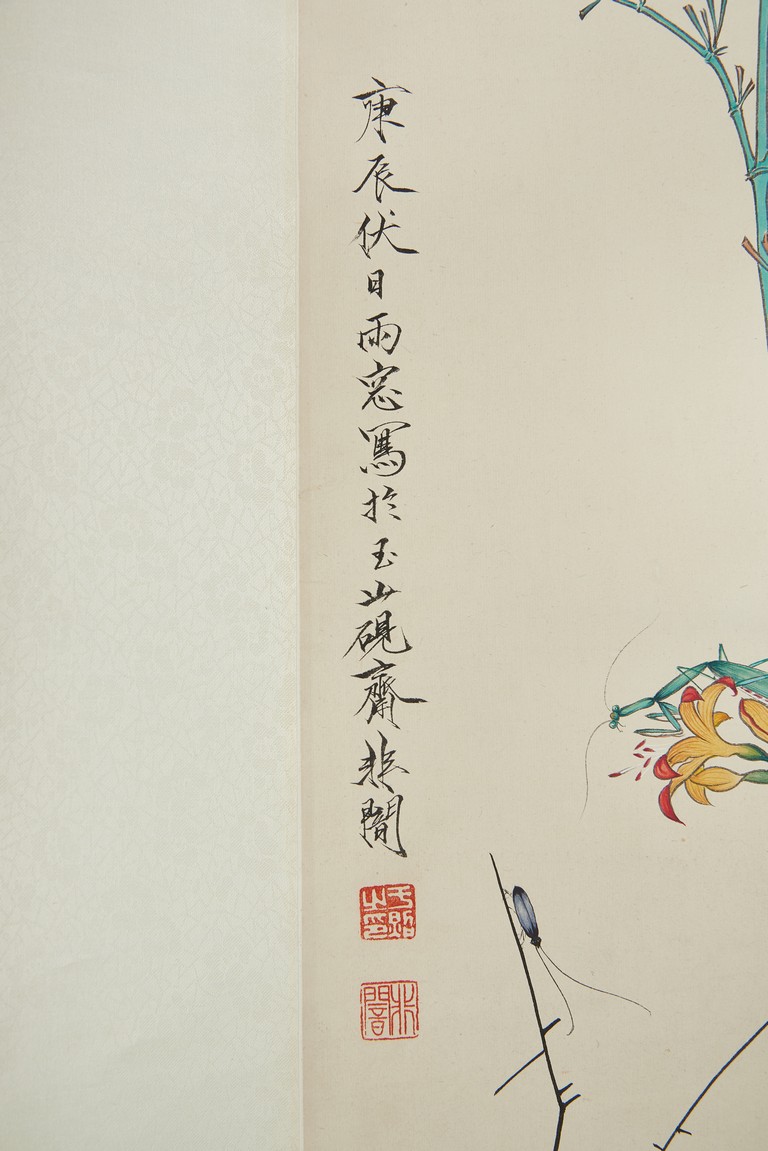 庚辰伏日雨窓寫於玉山硯齋非闇
于照之印
非闇